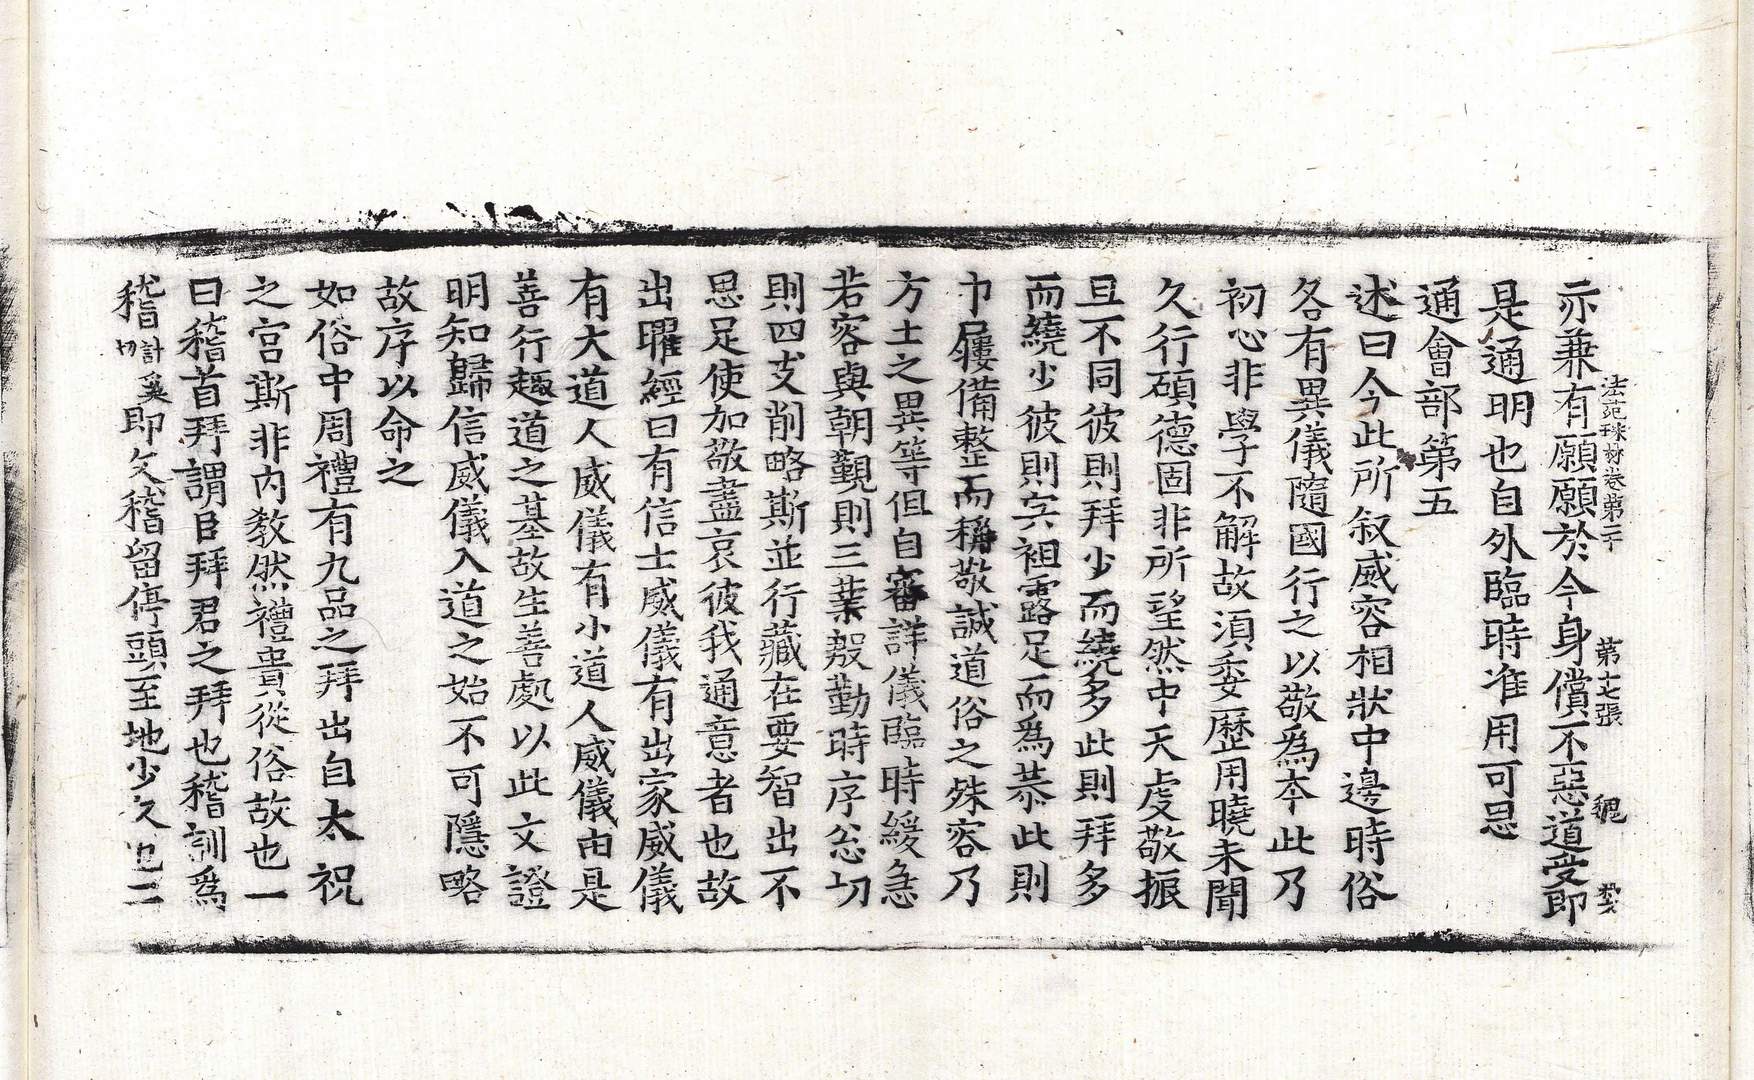 法苑珠林卷第二十 第十七張 䂓 𢾭
亦兼有願願於今身償不惡道受即
是通明也自外臨時准用可悉
通會部第五
述曰今此所叙威容相狀中邊時俗
各有異儀隨國行之以敬為本此乃
初心非學不解故須委歷用曉未聞
久行碩德固非所望然中天虔敬振
旦不同彼則拜少而繞多此則拜多
而繞少彼則肉袒露足而為恭此則
巾屨備整而稱敬誠道俗之殊容乃
方土之異等但自審詳儀臨時緩急
若容與朝覲則三業殷勤時序忩切
則四支削略斯並行藏在要智出不
思足使加敬盡哀彼我通意者也故
出曜經曰有信士威儀有出家威儀
有大道人威儀有小道人威儀由是
善行趣道之基故生善處以此文證
明知歸信威儀入道之始不可隱略
故序以命之
如俗中周禮有九品之拜出自太祝
之宮斯非內教然禮貴從俗故也一
曰稽首拜謂臣拜君之拜也稽訓為
稽計奚切即久稽留停頭至地少久也二